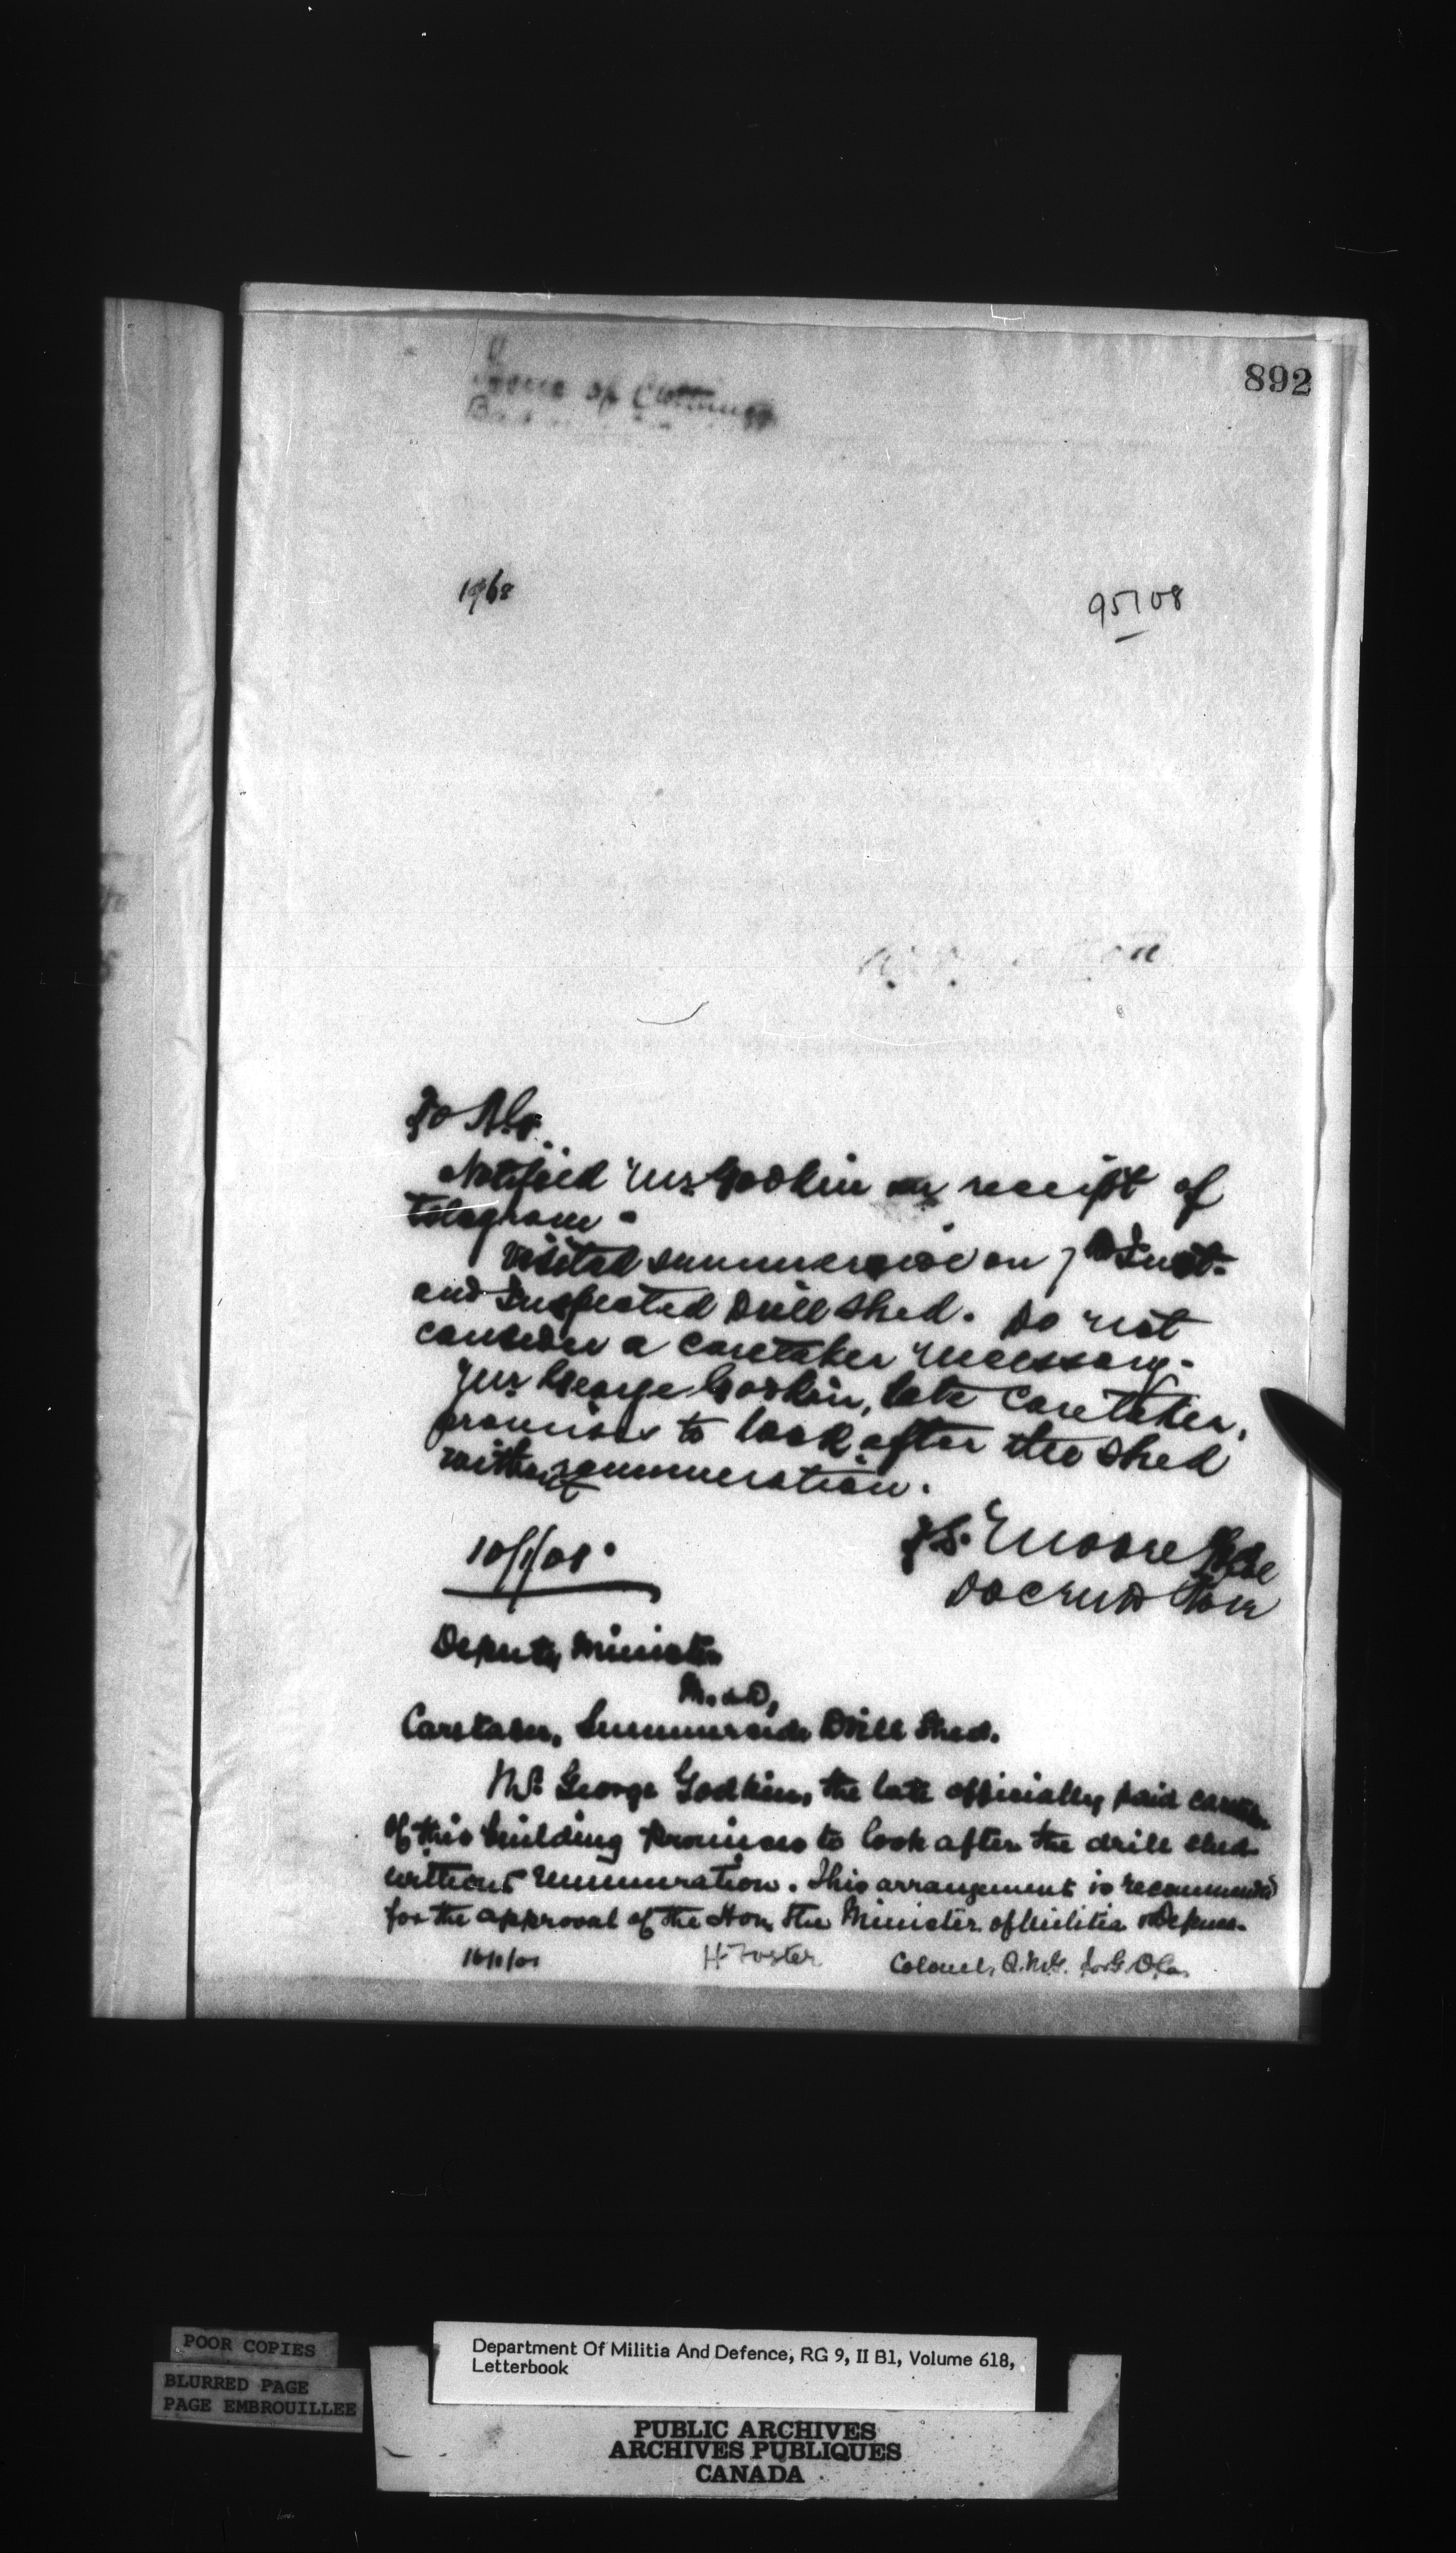 892
of
1968
95108
To
Notified Mr Godkin on receipt of
telegram.
Visited Summerside on 7th Inst.
and Inspected Drill Shed. Do not
consider a caretaker necessary.
Mr George Godkin, late caretaker,
promises to look after the shed
without remuneration.
Moore
DOC
Deputy Minister
M. & D,
Caretaker, Summerside Drill Shed.
Mr. George Godkin, the late officially paid
of this building promises to look after the drill shed
without remuneration. This arrangement is recommended
for the approval of the Hon. the Minister of Militia & Defence.
H Foster Colonel, Q.M.G.
POOR COPIES
BLURRED PAGE
PAGE EMBROUILLEE
Department Of Militia And Defence, RG 9, II B1, Volume 618,
Letterbook
PUBLIC ARCHIVES
ARCHIVES PUBLIQUES
CANADA